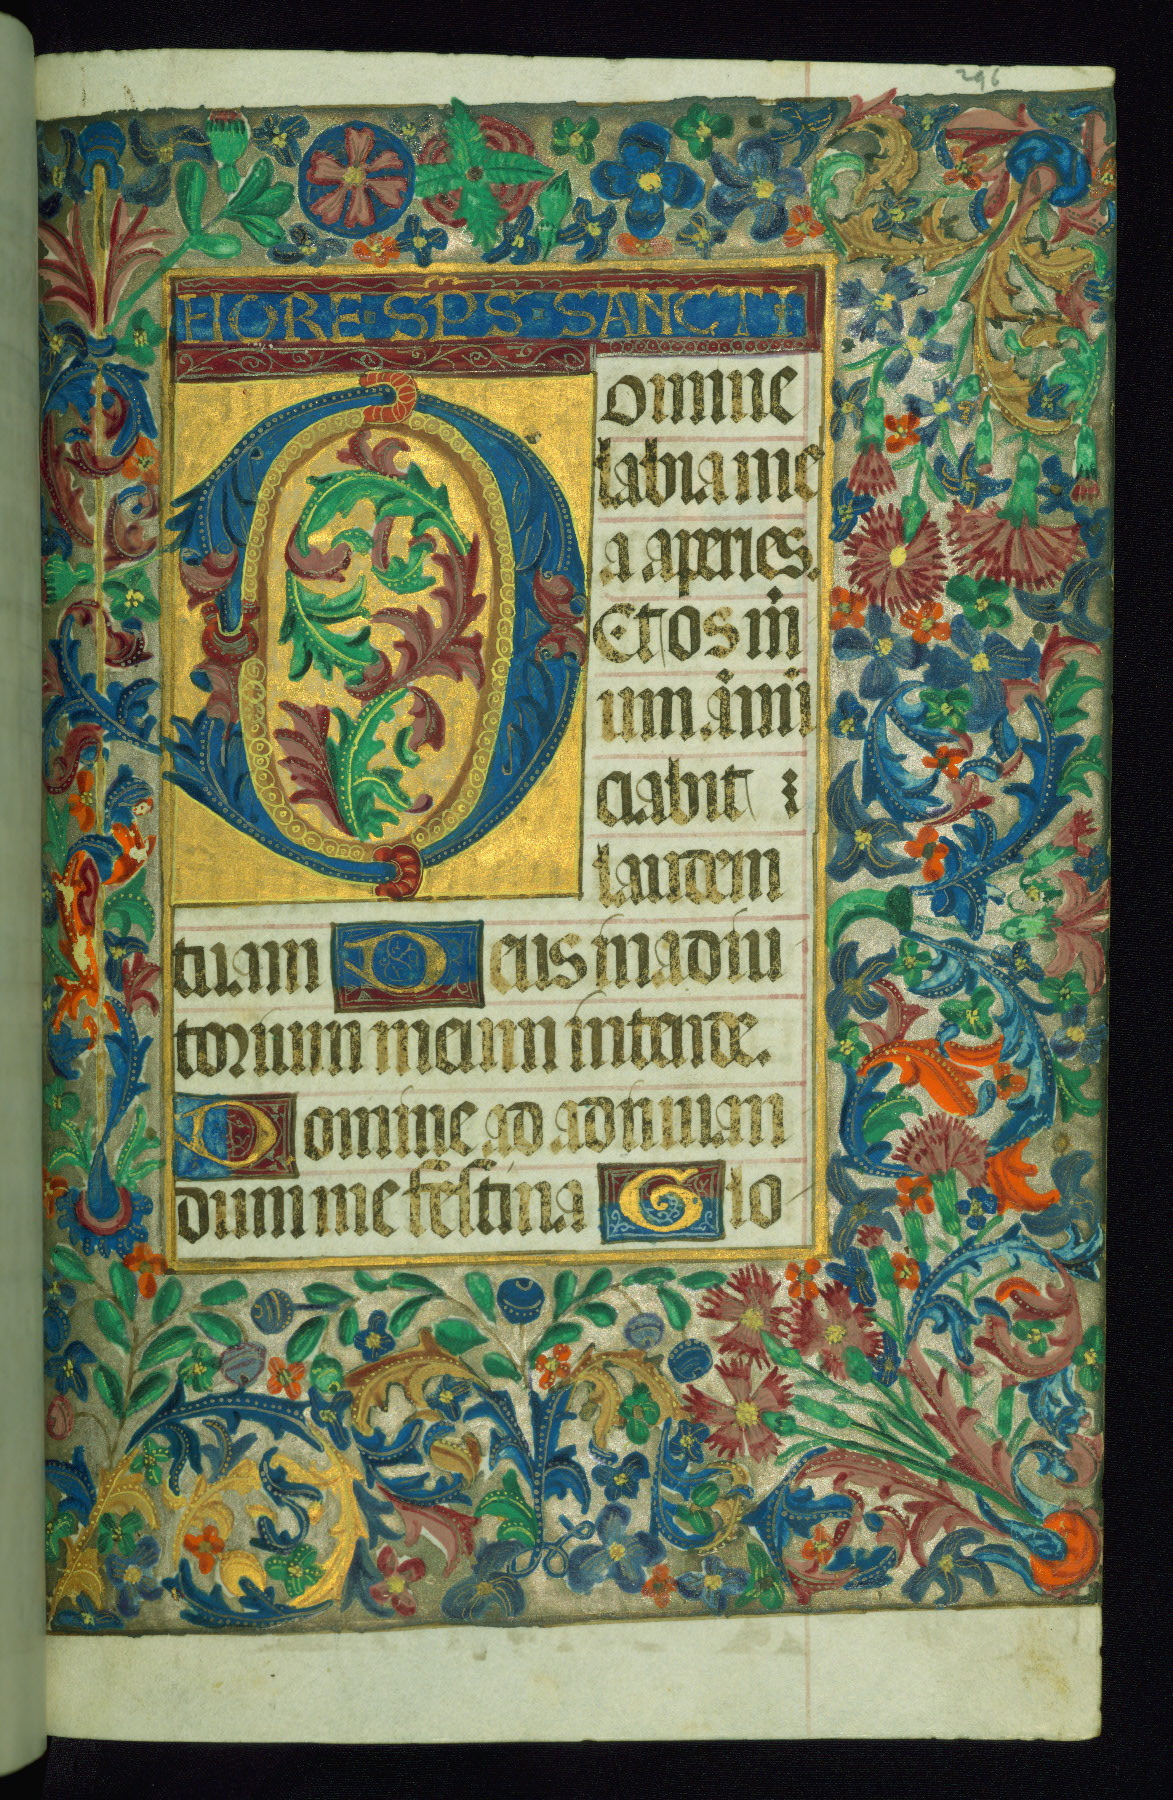 296
HORE·SPS·SANCTI
Domine
labia me
a aperies.
Et os m̄
um añnū
ciabit
laudem
tuam Deus in adiu
torium meum intende.
Domine ad adiuuan
dum me festina Glo